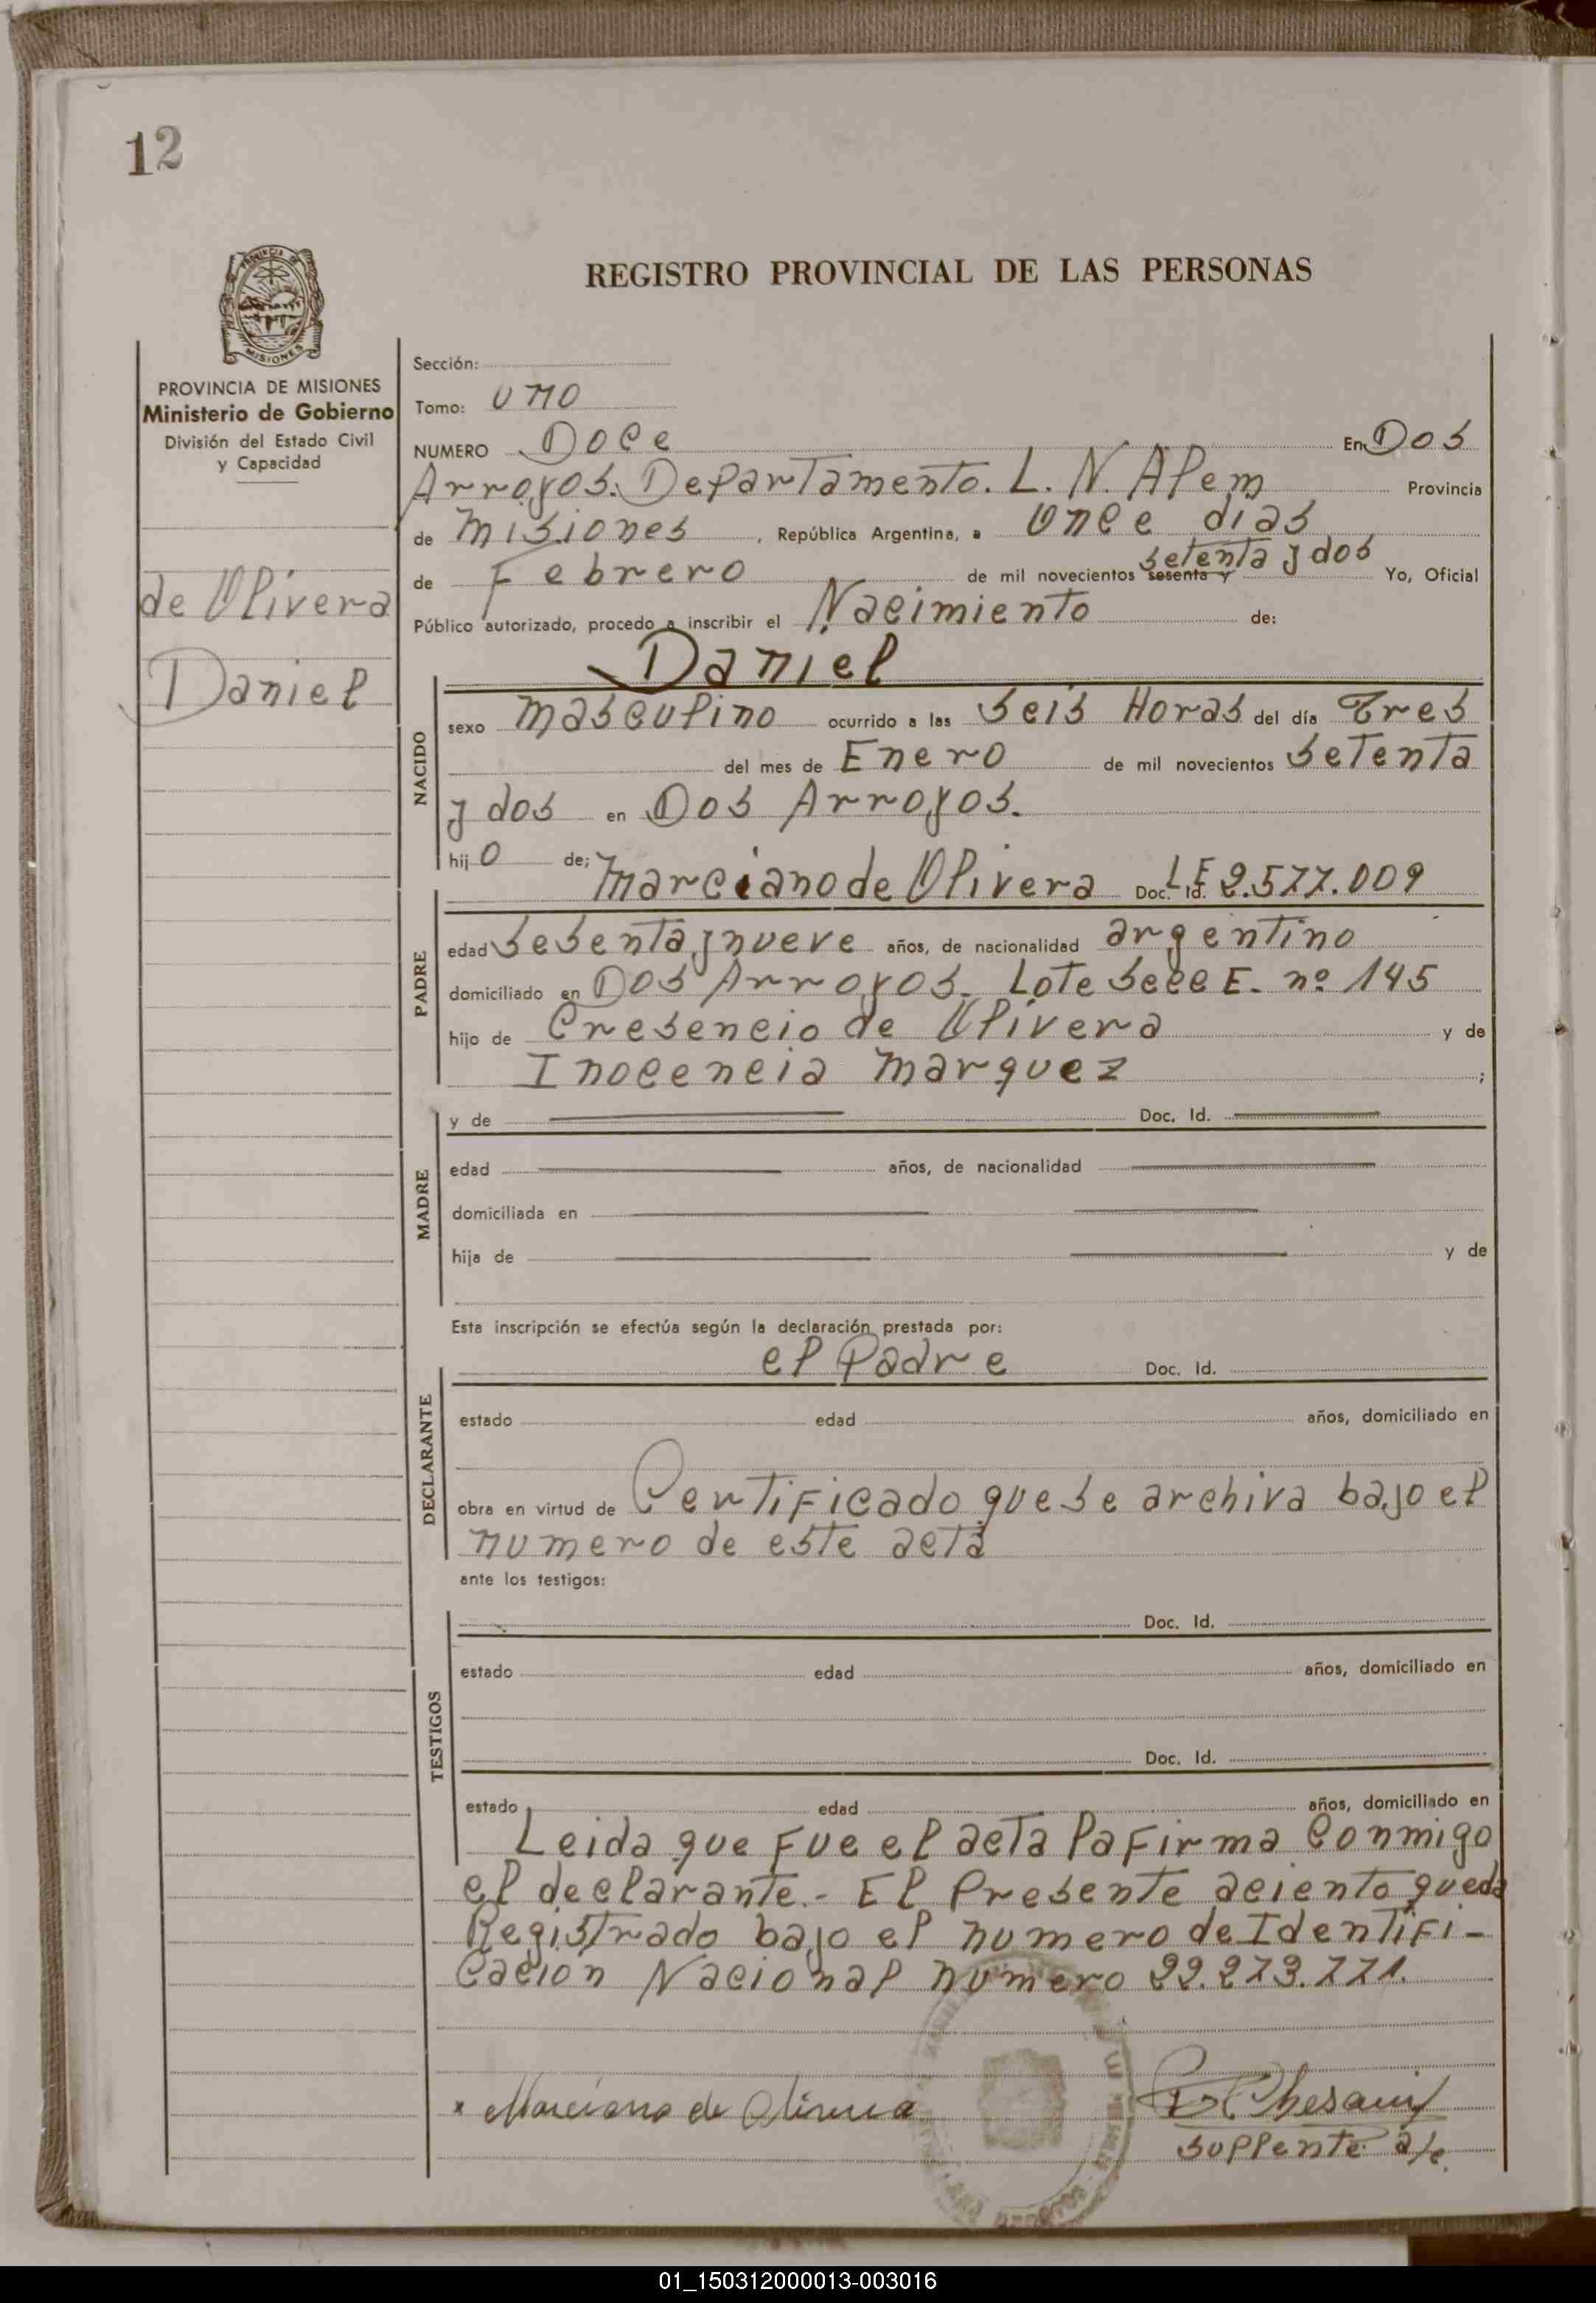 12
REGISTRO PROVINCIAL DE LAS PERSONAS
PROVINCIA DE MISIONES
MISIONES
PROVINCIA DE MISIONES
Ministerio de Gobierno
División del Estado Civil
y Capacidad
de Olivera
Daniel
Sección:
Tomo: uno
NUMERO Doce En Dos
Arroyos. Departamento. L. N. Alem Provincia
de misiones, República Argentina, a once días
de Febrero de mil novecientos sesenta y setenta y dos Yo, Oficial
Público autorizado, procedo a inscribir el Nacimiento de:
NACIDO
Daniel
sexo masculino ocurrido a las seis Horas del día Tres
del mes de Enero de mil novecientos setenta
y dos en Dos Arroyos.
hijo de; marciano de Olivera Doc. Id. LE 2.577.009
PADRE
edad sesenta y nueve años, de nacionalidad argentino
domiciliado en Dos Arroyos. Lote secc E. nº 145
hijo de Cresencio de Olivera y de
Inocencia marquez ;
MADRE
y de Doc. Id.
edad años, de nacionalidad
domiciliada en
hija de y de
Esta inscripción se efectúa según la declaración prestada por:
DECLARANTE
el Padre Doc. Id.
estado edad años, domiciliado en
obra en virtud de Certificado que se archiva bajo el
numero de este acta
ante los testigos:
TESTIGOS
Doc. Id.
estado edad años, domiciliado en
Doc. Id.
estado edad años, domiciliado en
Leida que fue el acta la firma conmigo
el declarante.- El Presente aciento queda
Registrado bajo el numero de Identifi-
cación Nacional numero 22.273.771.
x Marciano de Olivera
suplente a/c.
01_150312000013-003016